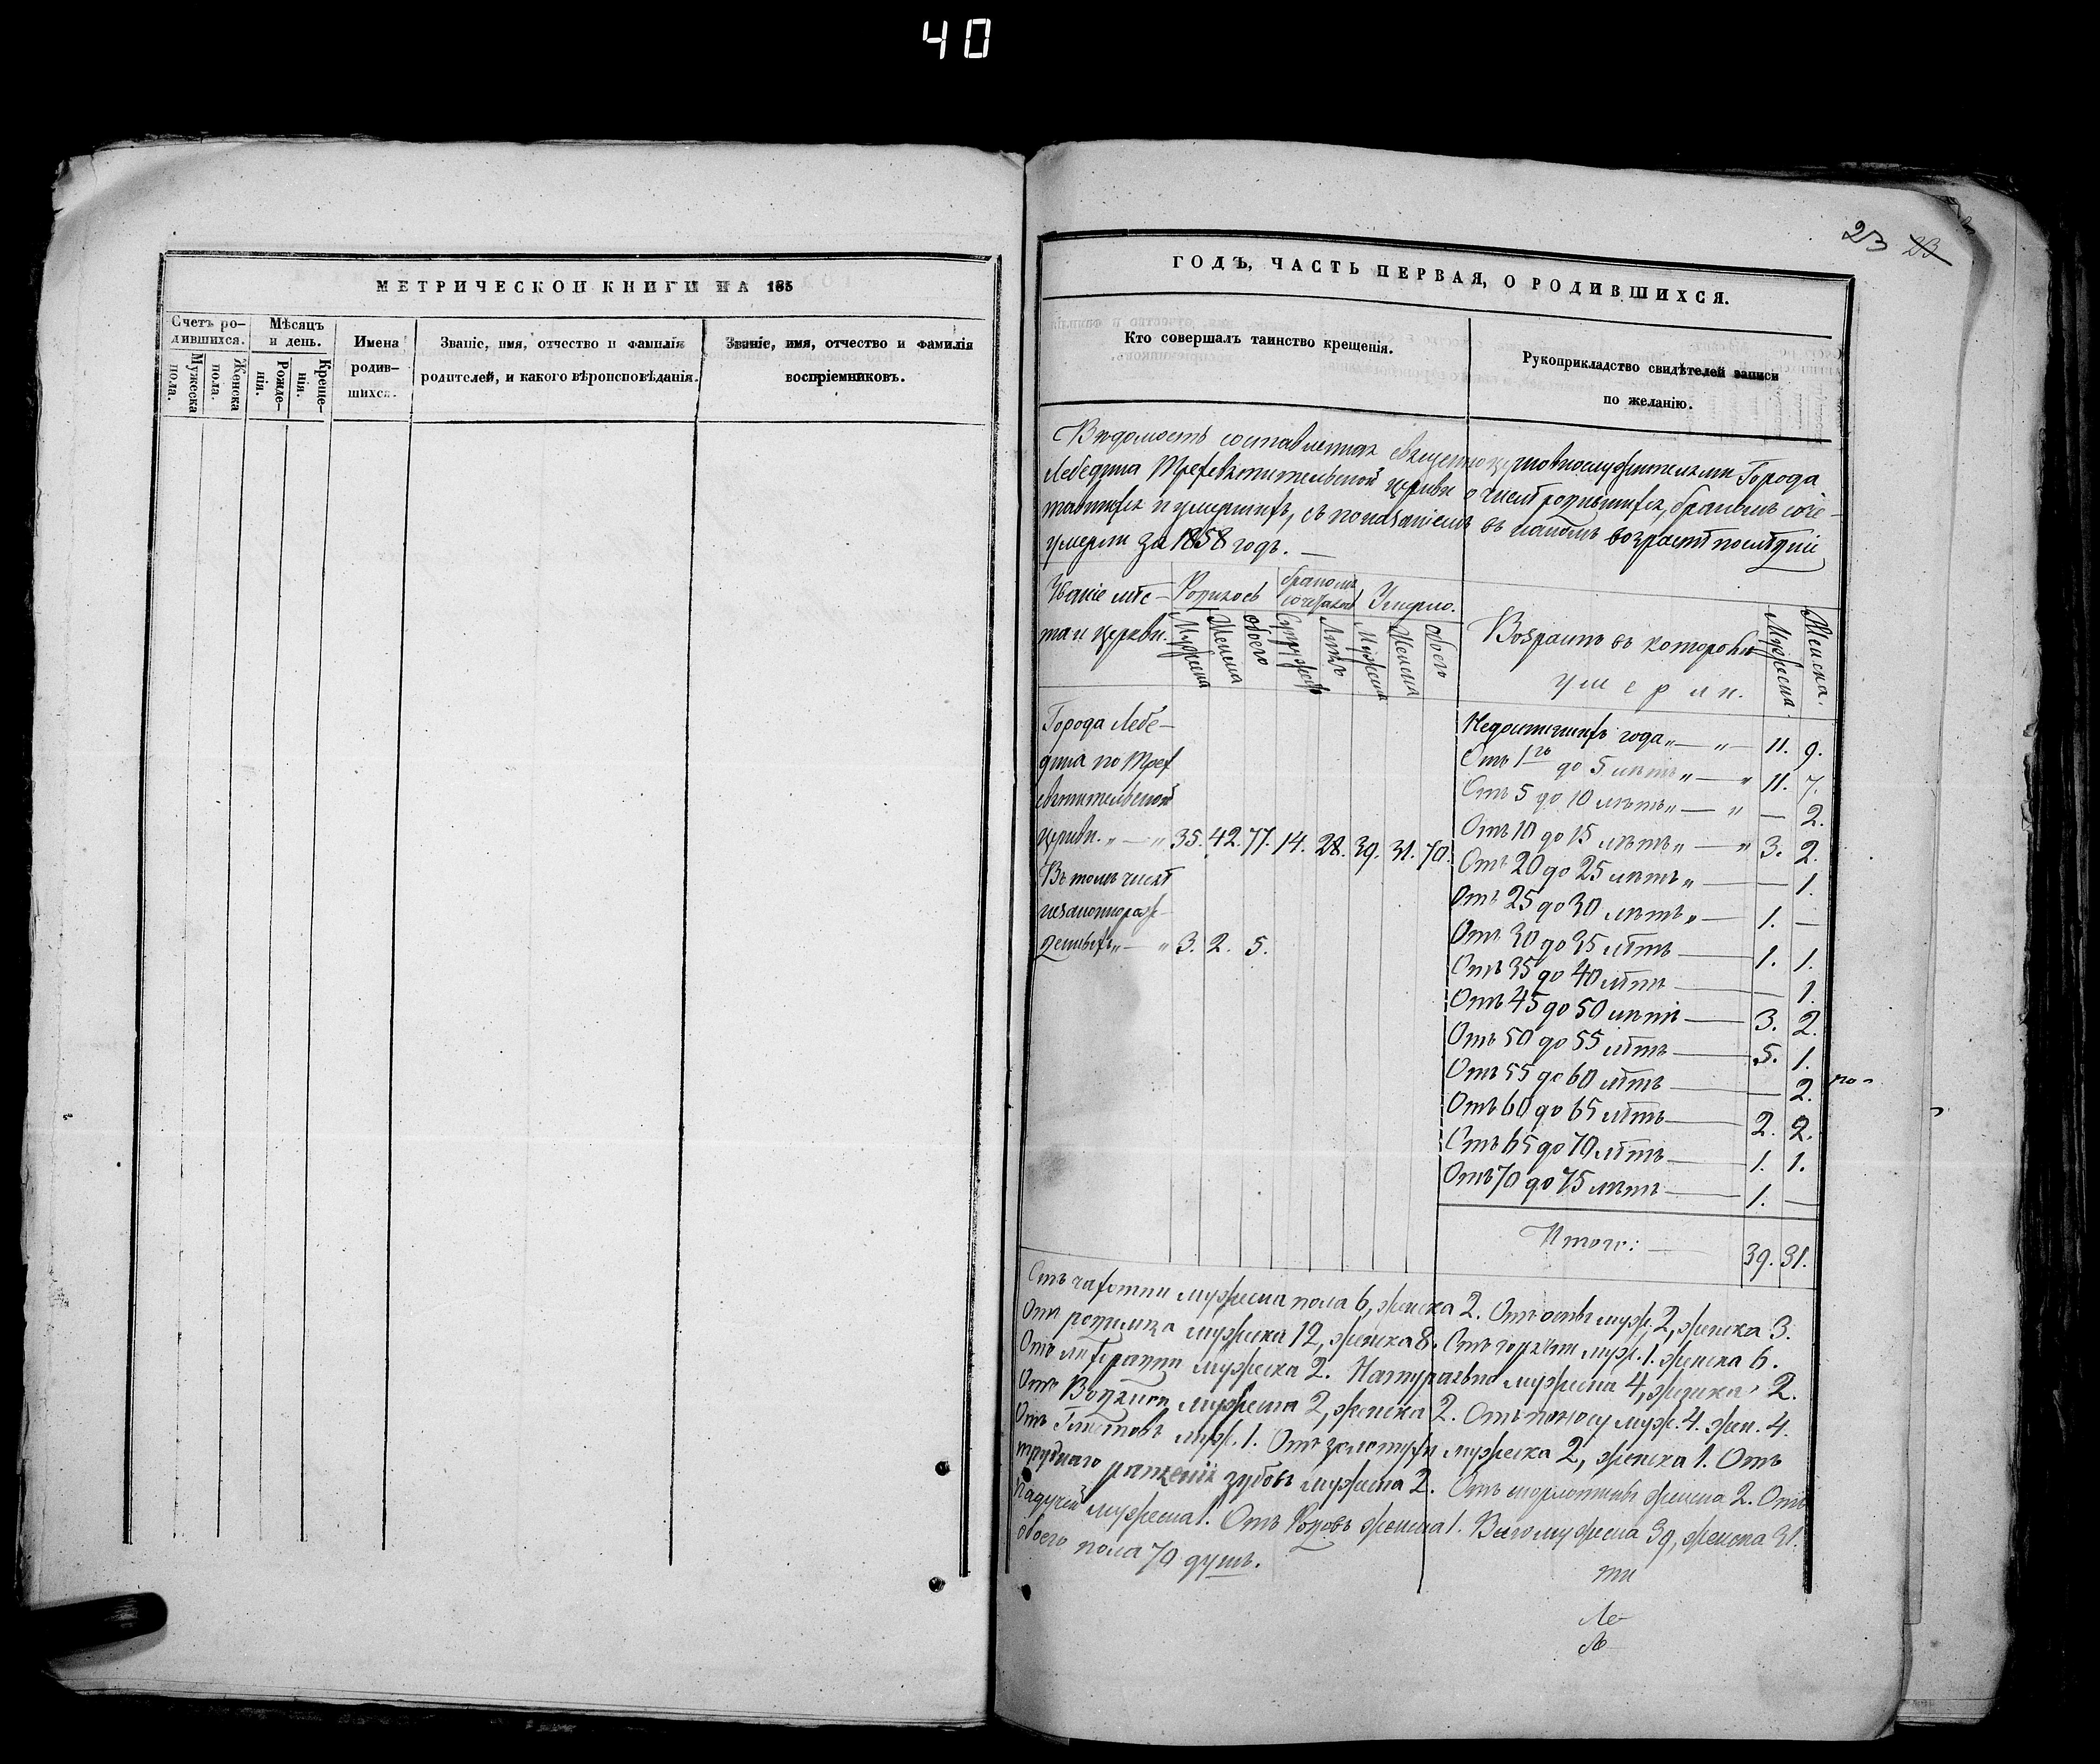 40
МЕТРИЧЕСКОЙ КНИГИ НА 185
Счетъ ро-
дившихся.
Мужеска пола.
Женска пола.
Мѣсяцъ
и день.
Рожде-
нія.
Креще-
нія.
Имена
родив-
шихся.
Званіе, имя, отчество и фамилія
родителей, и какого вѣроисповѣданія.
Званіе, имя, отчество и фамилія
воспріемниковъ.
23 23
ГОДЪ, ЧАСТЬ ПЕРВАЯ, О РОДИВШИХСЯ.
Кто совершалъ таинство крещенія.
Рукоприкладство свидѣтелей записи
по желанію.
Вѣдомость составленная священноцерковнослужителями Города
Лебедина Трехсвятительской церкви о числѣ родившихся, бракомъ соче-
тавшихся и умершихъ, съ показаніемъ въ какомъ возрастѣ послѣдніе
умерли за 1858 годъ. —
Званіе мѣс-
та и церкви.
Родилось
Мужеска
Женска
Обоего
бракомъ
сочеталось
Супружествъ
Лицъ
Умерло.
Мужеска
Женска
Обоего
Возрастъ въ которомъ
умерли.
Мужеска.
Женска.
Города Лебе-
дина по Трех
святительской
церкви. „ — „ 35. 42. 77. 14. 28. 39. 31. 70.
Въ томъ числѣ
незаконнорож-
денныхъ „ — „ 3. 2. 5.
Недостигшихъ года „ — „ — 11. 9.
Отъ 1го до 5 лѣтъ „ — „ 11. 7.
Отъ 5 до 10 лѣтъ „ — „ — 2.
Отъ 10 до 15 лѣтъ „ — „ 3. 2.
Отъ 20 до 25 лѣтъ „ — — 1.
Отъ 25 до 30 лѣтъ „ — 1. —
Отъ 30 до 35 лѣтъ — 1. 1.
Отъ 35 до 40 лѣтъ — — 1.
Отъ 45 до 50 лѣтъ — 3. 2.
Отъ 50 до 55 лѣтъ — 5. 1.
Отъ 55 до 60 лѣтъ — — 2.
Отъ 60 до 65 лѣтъ — 2. 2.
Отъ 65 до 70 лѣтъ — 1. 1.
Отъ 70 до 75 лѣтъ — 1. —
Итого: — 39. 31.
Отъ чахотки мужеска пола 6, женска 2. Отъ оспы муж. 2, женска 3.
Отъ родимца мужеска 12, женска 8. Отъ горячки муж. 1. женска 6.
Отъ лихорадки мужеска 2. Натурально мужеска 4, женска 2.
Отъ Водянки мужеска 2, женска 2. Отъ поносу муж. 4. жен. 4.
Отъ Глистовъ муж. 1. Отъ золотухи мужеска 2, женска 1. Отъ
труднаго ращенія зубовъ мужеска 2. Отъ скорлотины женска 2. Отъ
Падучей мужеска 1. Отъ Родовъ женска 1. Всего мужеска 39, женска 31.
обоего пола 70 душъ.
ти
Ле-